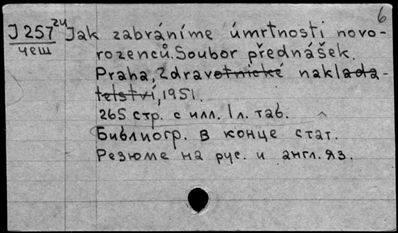 6
J 257 24
чеш
Jak zabráníme úmrtnosti novo-
rozenců. Soubor přednášek.
Praha, Zdravotnické naklada-
telství, 1951.
265 стр. с илл. 1 л. таб.
Библиогр. в конце стат.
Резюме на рус. и англ. яз.